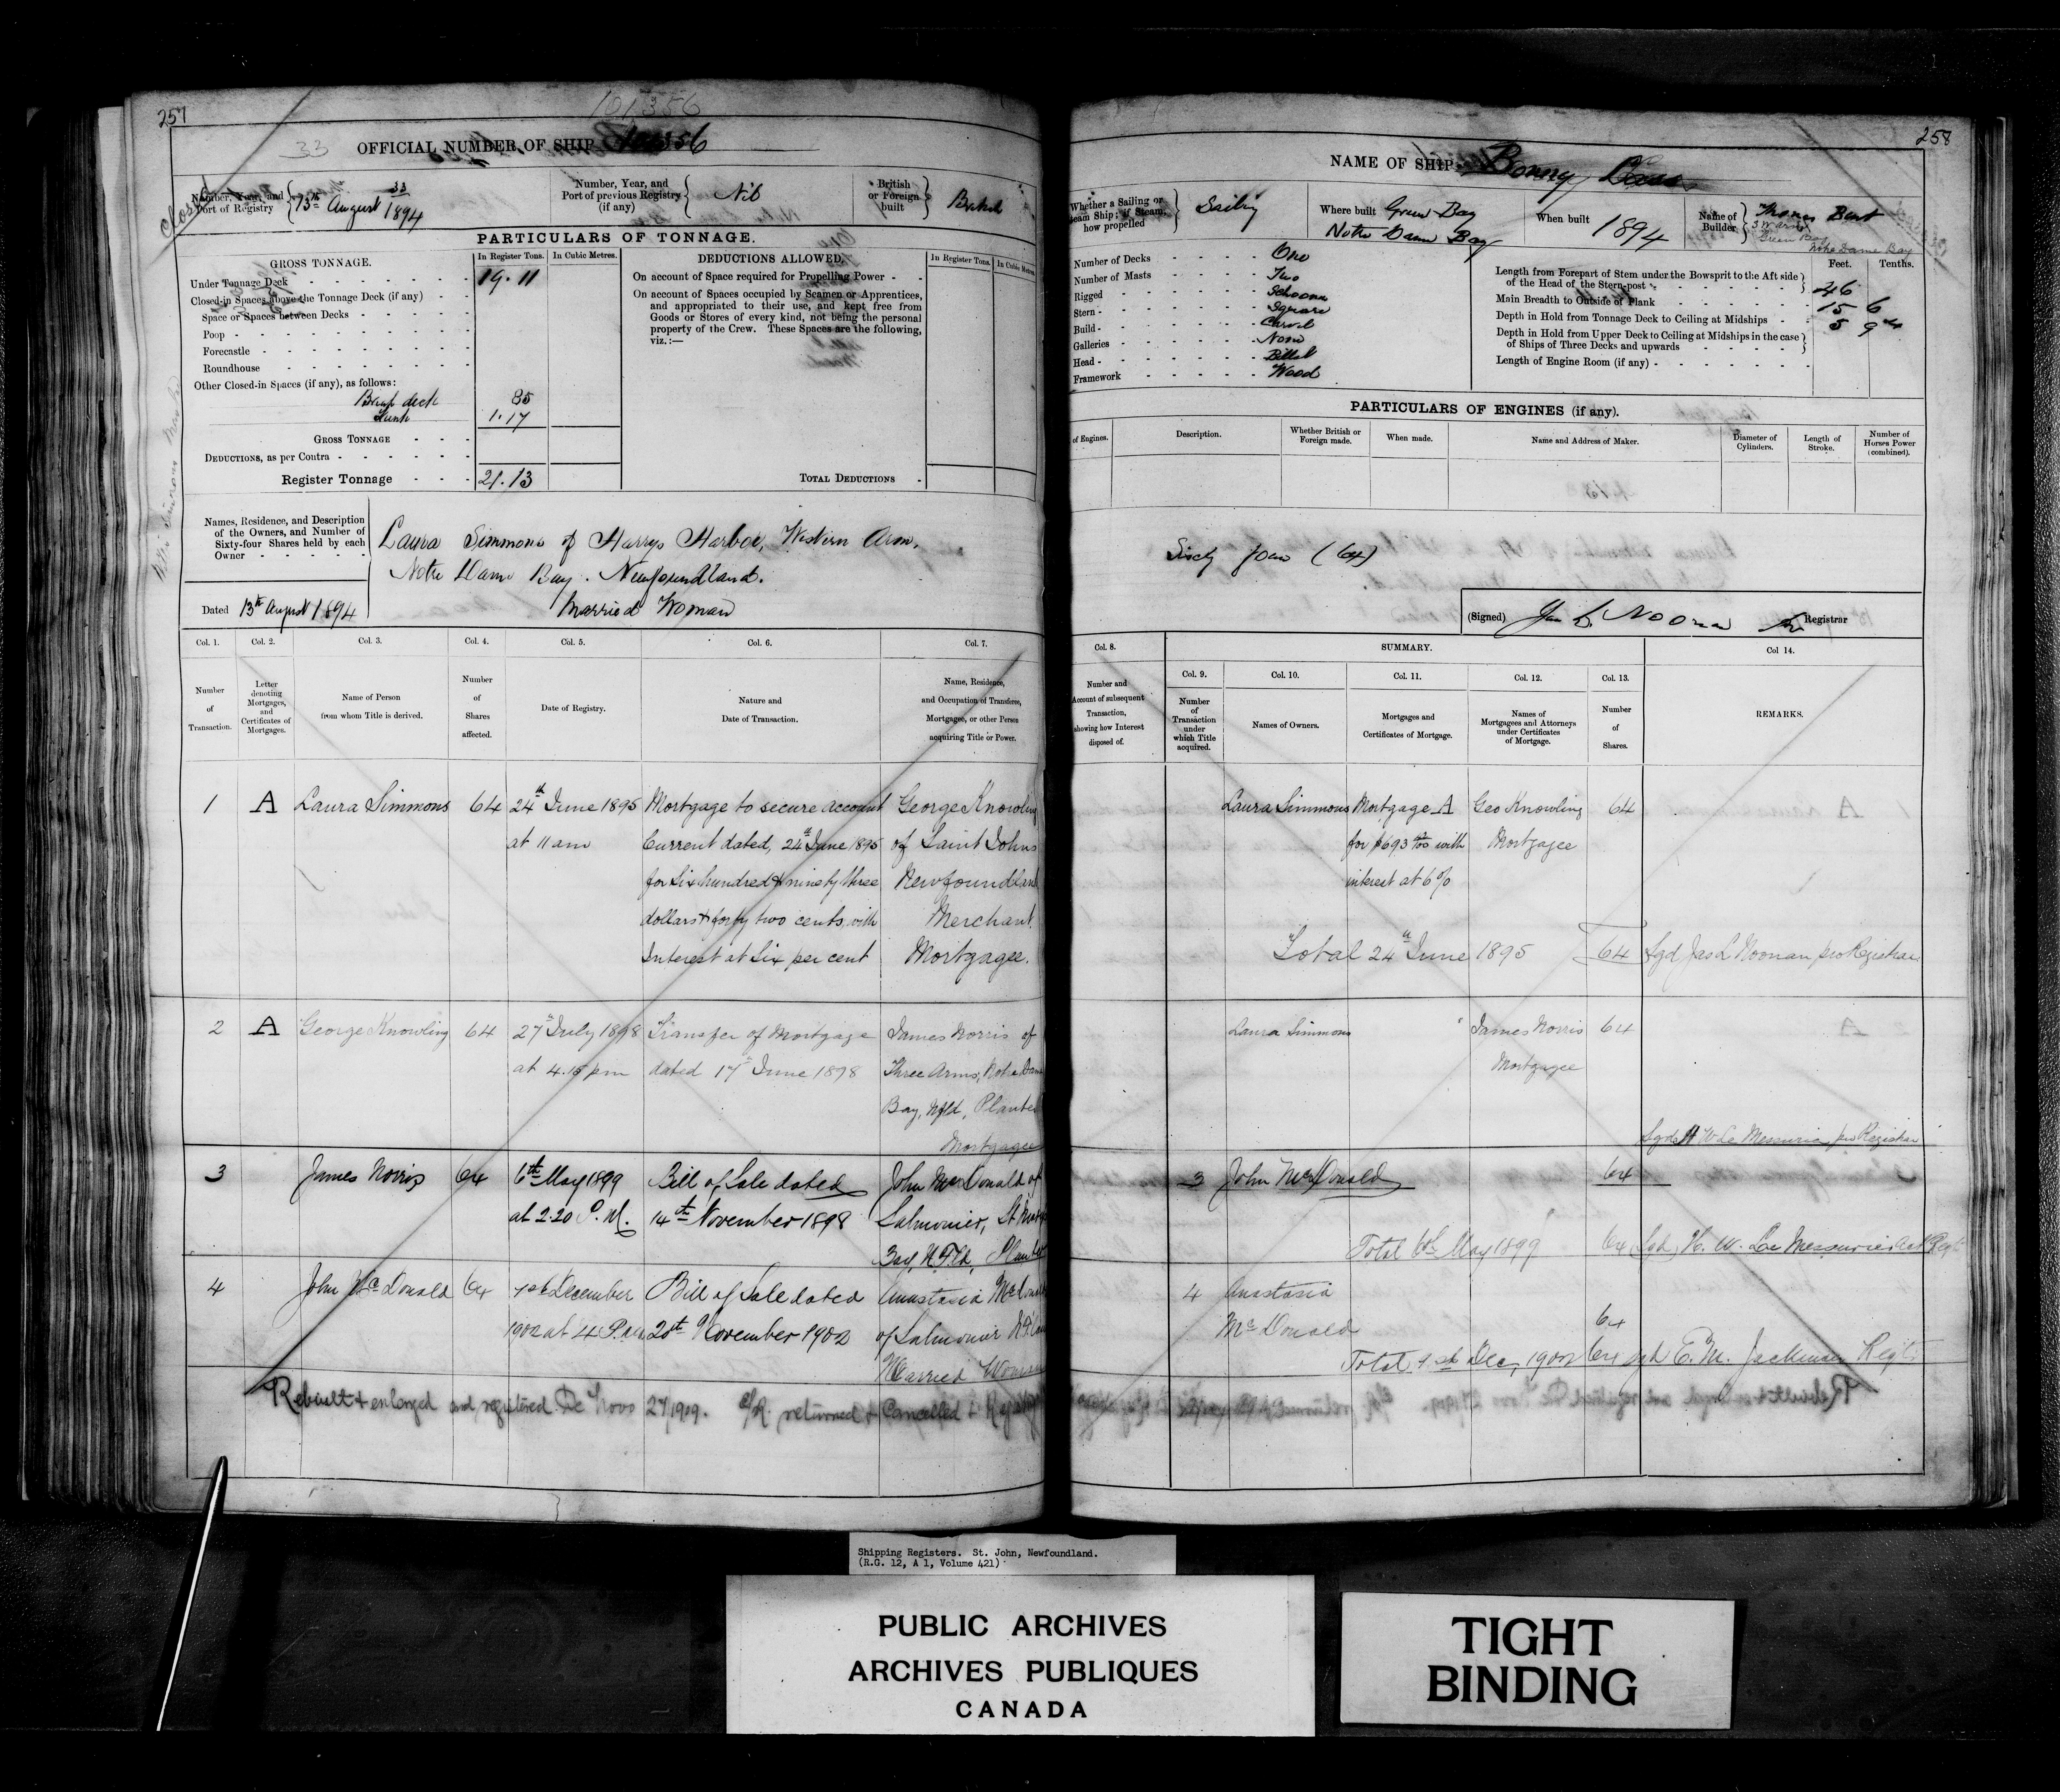 257
101,356
33
OFFICIAL NUMBER OF SHIP 101356
Closed
Number, Year, and Port of Registry 33 13th August 1894
Number, Year, and Port of previous Registry (if any) Nil
British or Foreign built British
PARTICULARS OF TONNAGE.
GROSS TONNAGE.
In Register Tons.
In Cubic Metres.
Under Tonnage Deck 19.11
Closed-in Spaces above the Tonnage Deck (if any)
Space or Spaces between Decks
Poop
Forecastle
Roundhouse
Other Closed-in Spaces (if any), as follows:
Break deck 85
1.17
GROSS TONNAGE
DEDUCTIONS, as per Contra
Register Tonnage 21.13
DEDUCTIONS ALLOWED.
In Register Tons.
In Cubic Metres
On account of Space required for Propelling Power
On account of Spaces occupied by Seamen or Apprentices,
and appropriated to their use, and kept free from
Goods or Stores of every kind, not being the personal
property of the Crew. These Spaces are the following,
viz.:—
TOTAL DEDUCTIONS
Names, Residence, and Description
of the Owners, and Number of
Sixty-four Shares held by each
Owner
Laura Simmons of Harrys Harbor, Western Arm,
Notre Dame Bay. Newfoundland.
Married Woman
Dated 13th August 1894
Col. 1. Col. 2. Col. 3. Col. 4. Col. 5. Col. 6. Col. 7.
Number of Transaction.
Letter denoting Mortgages, and Certificates of Mortgages.
Name of Person from whom Title is derived.
Number of Shares affected.
Date of Registry.
Nature and Date of Transaction.
Name, Residence, and Occupation of Transferee, Mortgagee, or other Person acquiring Title or Power.
1 A Laura Simmons 64 24th June 1895 Mortgage to secure account George Knowling
at 11 am Current dated, 24th June 1895 of Saint Johns
for Six hundred & ninety three Newfoundland
dollars & forty two cents, with Merchant
Interest at Six per cent Mortgagee.
2 A George Knowling 64 27th July 1898 Transfer of Mortgage James Norris of
at 4.15 pm dated 17th June 1898 Three Arms, Notre Dame
Bay, Nfld, Planter
Mortgagee
3 James Norris 64 6th May 1899 Bill of Sale dated John McDonald of
at 2.20 P.M. 14th November 1898 Salmonier, St Marys
Bay, N.F.ld, Planter
4 John McDonald 64 1st December Bill of Sale dated Anastasia McDonald
1902 at 4 P.M. 20th November 1902 of Salmonier
Married Woman
Rebuilt & enlarged and registered De Novo 27/1909. C/R. returned & Cancelled & Registry
258
NAME OF SHIP Bonny Lass
Whether a Sailing or Steam Ship; if Steam, how propelled Sailing
Where built Green Bay
Notre Dame Bay
When built 1894
Name of Builder Thomas Burt
3 Arms
Green Bay
Notre Dame Bay
Number of Decks One
Number of Masts Two
Rigged Schooner
Stern Square
Build Carvel
Galleries None
Head Billet
Framework Wood
Feet. Tenths.
Length from Forepart of Stem under the Bowsprit to the Aft side
of the Head of the Stern-post 46
Main Breadth to Outside of Plank 15 6
Depth in Hold from Tonnage Deck to Ceiling at Midships 5 9
Depth in Hold from Upper Deck to Ceiling at Midships in the case
of Ships of Three Decks and upwards
Length of Engine Room (if any)
PARTICULARS OF ENGINES (if any).
of Engines.
Description.
Whether British or Foreign made.
When made.
Name and Address of Maker.
Diameter of Cylinders.
Length of Stroke.
Number of Horses Power (combined).
Sixty four (64)
(Signed) Jas L Noonan Registrar
Col. 8. SUMMARY. Col 14.
Col. 9. Col. 10. Col. 11. Col. 12. Col. 13.
Number and Account of subsequent Transaction, showing how Interest disposed of.
Number of Transaction under which Title acquired.
Names of Owners.
Mortgages and Certificates of Mortgage.
Names of Mortgagees and Attorneys under Certificates of Mortgage.
Number of Shares.
REMARKS.
Laura Simmons Mortgage A Geo Knowling 64
for $693 with Mortgagee
interest at 6%
Total 24th June 1895 64 Sgd Jas L Noonan pro Registrar
Laura Simmons James Norris 64
Mortgagee
Sgd H W Le Messurier pro Registrar
3 John McDonald 64
Total 6th May 1899 64 Sgd H. W. Le Messurier Regr
4 Anastasia
McDonald 64
Total 1st Dec, 1902 64 sgd E.M. Jackman Regr
Shipping Registers. St. John, Newfoundland.
(R.G. 12, A 1, Volume 421)
PUBLIC ARCHIVES
ARCHIVES PUBLIQUES
CANADA
TIGHT
BINDING